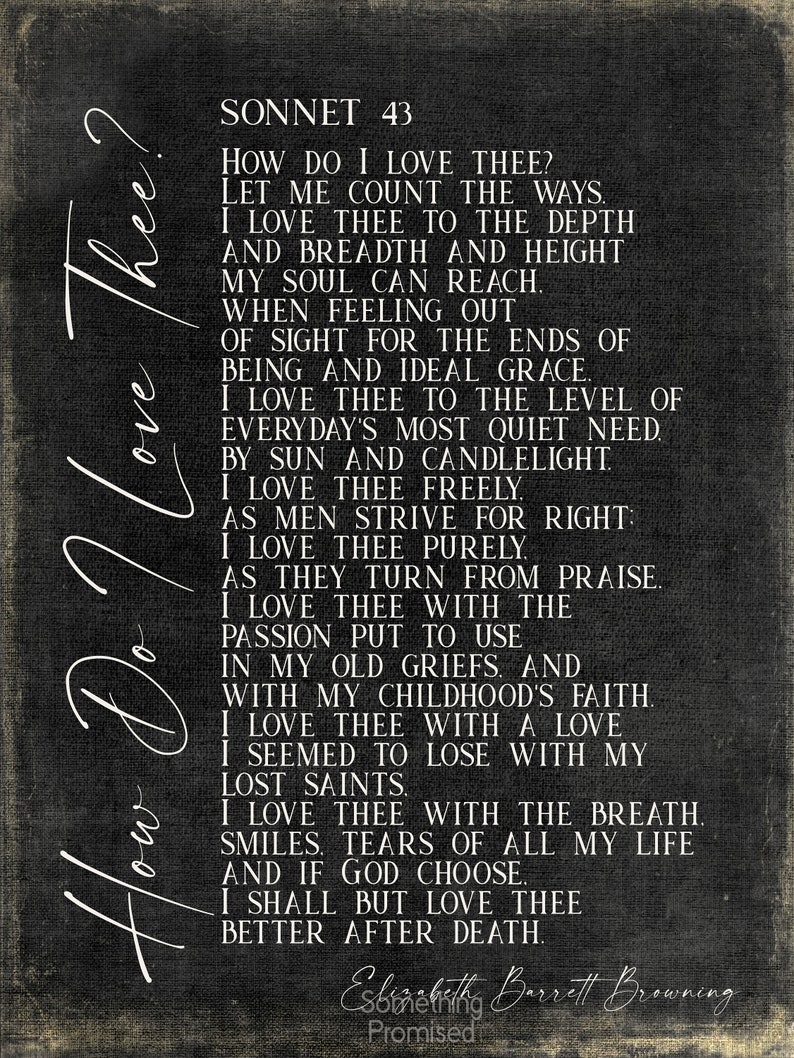 How Do I Love Thee?
SONNET 43
HOW DO I LOVE THEE?
LET ME COUNT THE WAYS.
I LOVE THEE TO THE DEPTH
AND BREADTH AND HEIGHT
MY SOUL CAN REACH,
WHEN FEELING OUT
OF SIGHT FOR THE ENDS OF
BEING AND IDEAL GRACE.
I LOVE THEE TO THE LEVEL OF
EVERYDAY'S MOST QUIET NEED,
BY SUN AND CANDLELIGHT.
I LOVE THEE FREELY,
AS MEN STRIVE FOR RIGHT;
I LOVE THEE PURELY,
AS THEY TURN FROM PRAISE.
I LOVE THEE WITH THE
PASSION PUT TO USE
IN MY OLD GRIEFS, AND
WITH MY CHILDHOOD'S FAITH.
I LOVE THEE WITH A LOVE
I SEEMED TO LOSE WITH MY
LOST SAINTS,
I LOVE THEE WITH THE BREATH,
SMILES, TEARS OF ALL MY LIFE
AND IF GOD CHOOSE,
I SHALL BUT LOVE THEE
BETTER AFTER DEATH.
Elizabeth Barrett Browning
Something
Promised